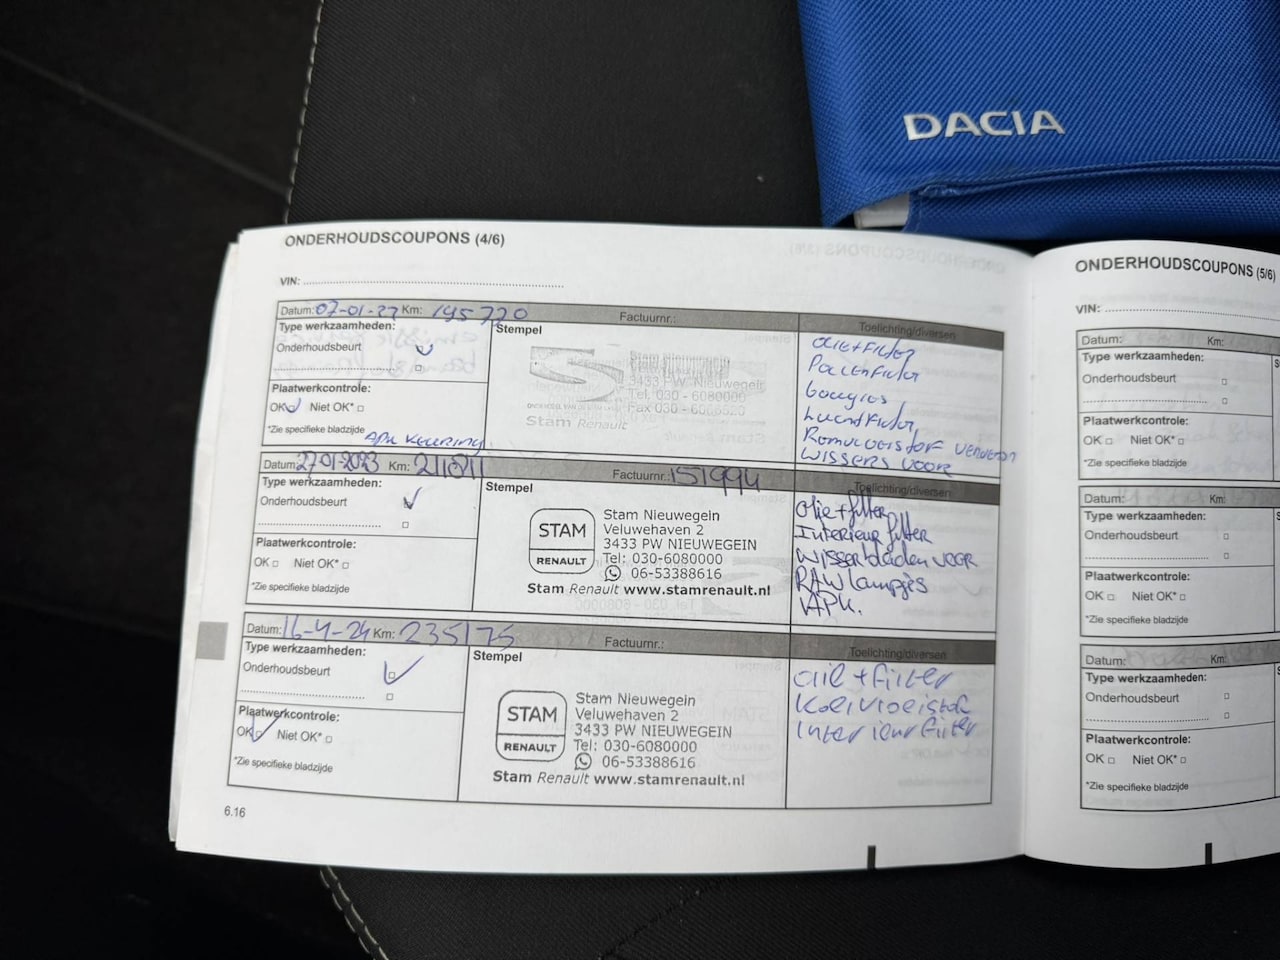 DACIA
ONDERHOUDSCOUPONS (4/6)
VIN:
Datum: 07-01-22 Km: 195720 Factuurnr.:
Type werkzaamheden:
Stempel
Toelichting/diversen
Onderhoudsbeurt
Plaatwerkcontrole:
OK Niet OK*
*Zie specifieke bladzijde
APK KEURING
Stam Nieuwegein
3433 PW Nieuwegein
Tel. 030 - 6080000
Stam Renault
olie+filter
Pollenfilter
bougies
Luchtfilter
Remvloeistof ververst
WISSERS VOOR
Datum: 27-01-2023 Km: 211811 Factuurnr.: 151994
Type werkzaamheden:
Stempel
Toelichting/diversen
Onderhoudsbeurt
Plaatwerkcontrole:
OK Niet OK*
*Zie specifieke bladzijde
STAM
RENAULT
Stam Nieuwegein
Veluwehaven 2
3433 PW NIEUWEGEIN
Tel: 030-6080000
06-53388616
Stam Renault www.stamrenault.nl
olie+filter
Interieur filter
Wisserbladen voor
RAW lampjes
APK.
Datum: 16-4-24 Km: 235175 Factuurnr.:
Type werkzaamheden:
Stempel
Toelichting/diversen
Onderhoudsbeurt
Plaatwerkcontrole:
OK Niet OK*
*Zie specifieke bladzijde
STAM
RENAULT
Stam Nieuwegein
Veluwehaven 2
3433 PW NIEUWEGEIN
Tel: 030-6080000
06-53388616
Stam Renault www.stamrenault.nl
olie+filter
Koelvloeistof
Interieurfilter
6.16
ONDERHOUDSCOUPONS (5/6)
VIN:
Datum: Km:
Type werkzaamheden:
Onderhoudsbeurt
Plaatwerkcontrole:
OK Niet OK*
*Zie specifieke bladzijde
Datum: Km:
Type werkzaamheden:
Onderhoudsbeurt
Plaatwerkcontrole:
OK Niet OK*
*Zie specifieke bladzijde
Datum: Km:
Type werkzaamheden:
Onderhoudsbeurt
Plaatwerkcontrole:
OK Niet OK*
*Zie specifieke bladzijde